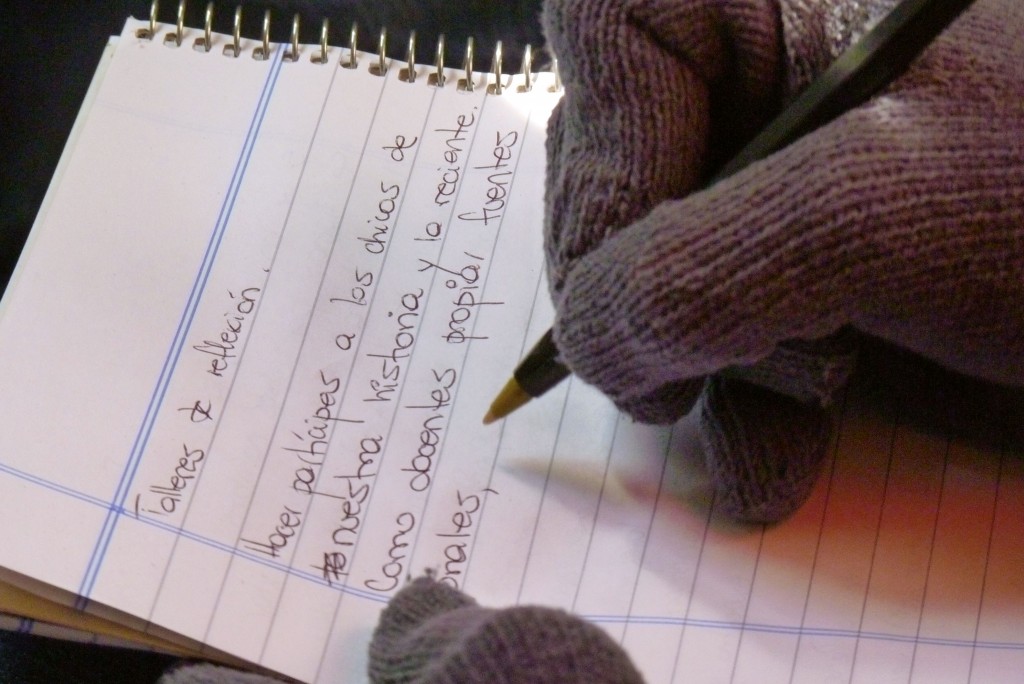 Talleres de reflexión.
Hacer partícipes a los chicos de
nuestra historia y lo reciente.
Como docentes propiar fuentes
onales,